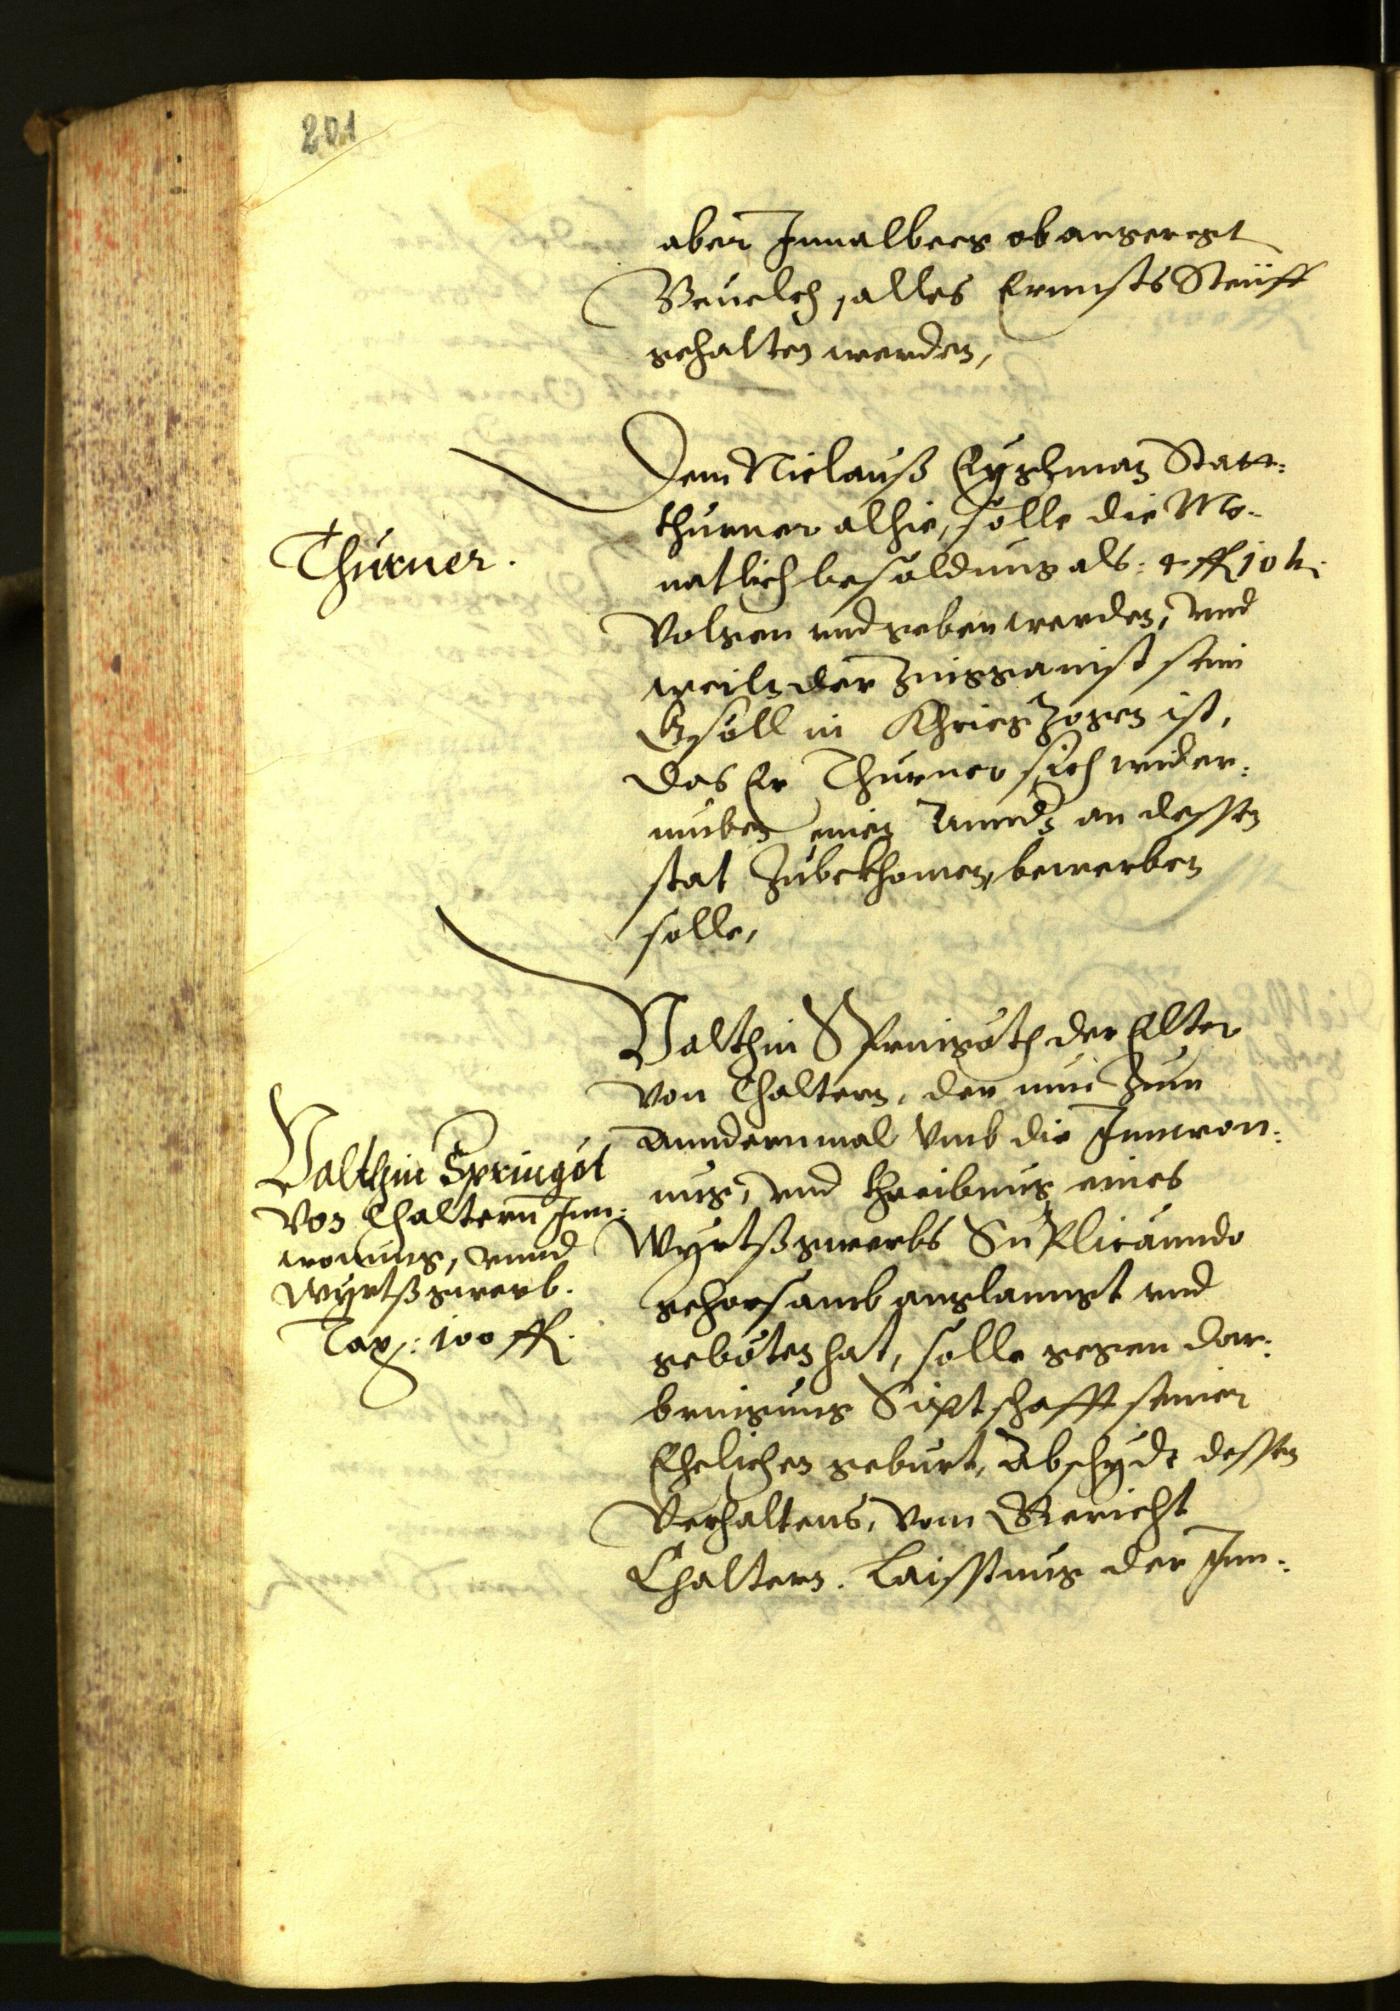 201
aber Innalberg ob angeregt
Beuelch, alles Ernnsts Steiff
gehalten werden,
Thurner.
Dem Niclauß Eyghman Statt-
thurner alhie, solle die Mo-
natlich besoldung als: 4 fl 10 k:
Volgen und geben werden, und
weiln der Zingganist sein
Gsöll in Khrieg Zogen ist,
das Er Thurner sich wider-
umben einen Annd'n an dessen
stat Zubekhomen, bewerben
solle,
Valthin Springöt
Von Chaltern Inn-
wonung, unnd
Wyrtßgwerb.
Tax: 100 fl.
Valthin Springöth der Elter
von Chaltern, der nun Zum
Anndernmal Umb die Innwon-
ung, und threibung eines
Wyrtßgwerbs Suplicanndo
gehorsamb anglanngt und
geböten hat, solle gegen dar-
bringung Siptschafft seiner
Ehelichen geburt, Abschydt dessen
Verhaltens, vom Gericht
Chaltern. Laisstung der Inn-